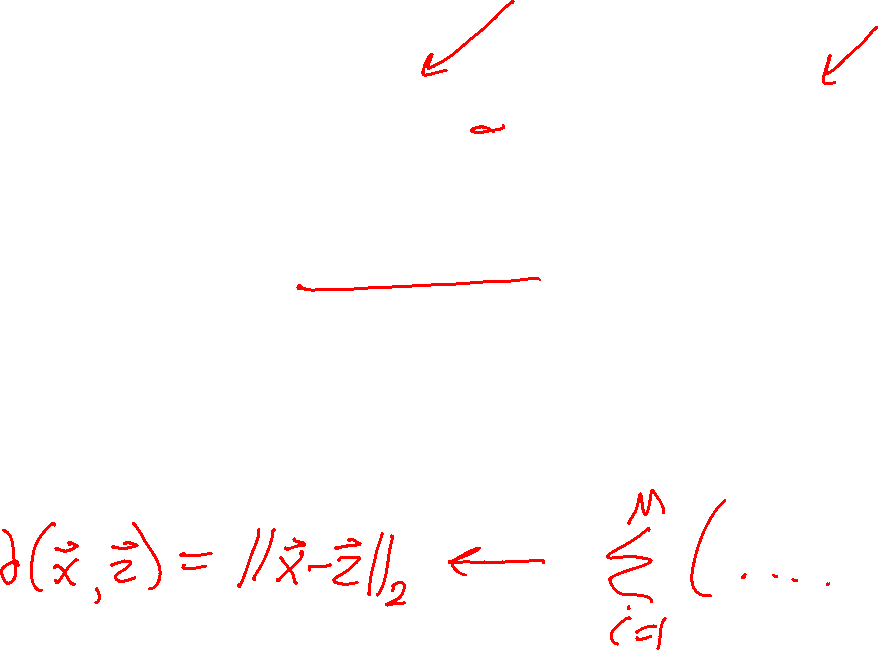 d(x⃗, z⃗) = ||x⃗ - z⃗||₂ ← ∑_{i=1}^{M} (....